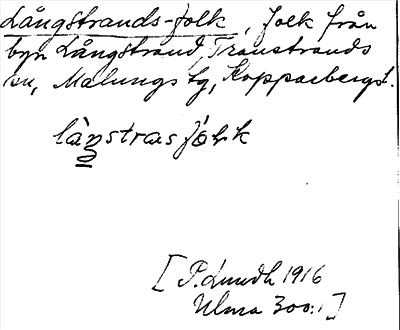 Långstrands-folk, folk från
byn Långstrand, Transtrands
sn, Malungs tg, Kopparbergs l.
làŋstras fόlk
[P. Lundh 1916
Ulma 300:1]